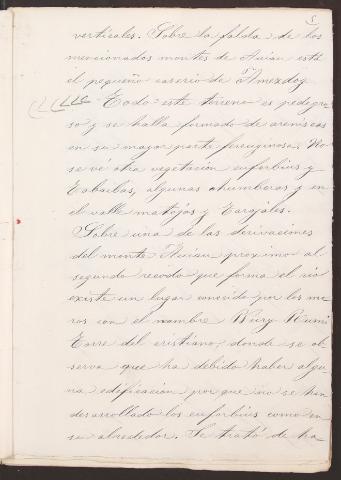 5
verticales. Sobre la falda de los
mencionados montes de Auian está
el pequeño caserio de Amezdog
Todo este terreno es pedegre-
so y se halla formado de areniscas
en su mayor parte ferruginosa. No
se vé otra vegetación euforbius y
Tabaibas, algunas chumberas y en
el valle matojos y Tarajales.
Sobre una de las derivaciones
del monte Auian proximo al
segundo recodo que forma el rio
existe un lugar conocido por los mo-
ros con el nombre Bury Rumi
Torre del cristiano, donde se ob-
serva que ha debido haber algu-
na edificación por que no se han
desarrollado los euforbius como en
su alrededor. Se trató de ha-